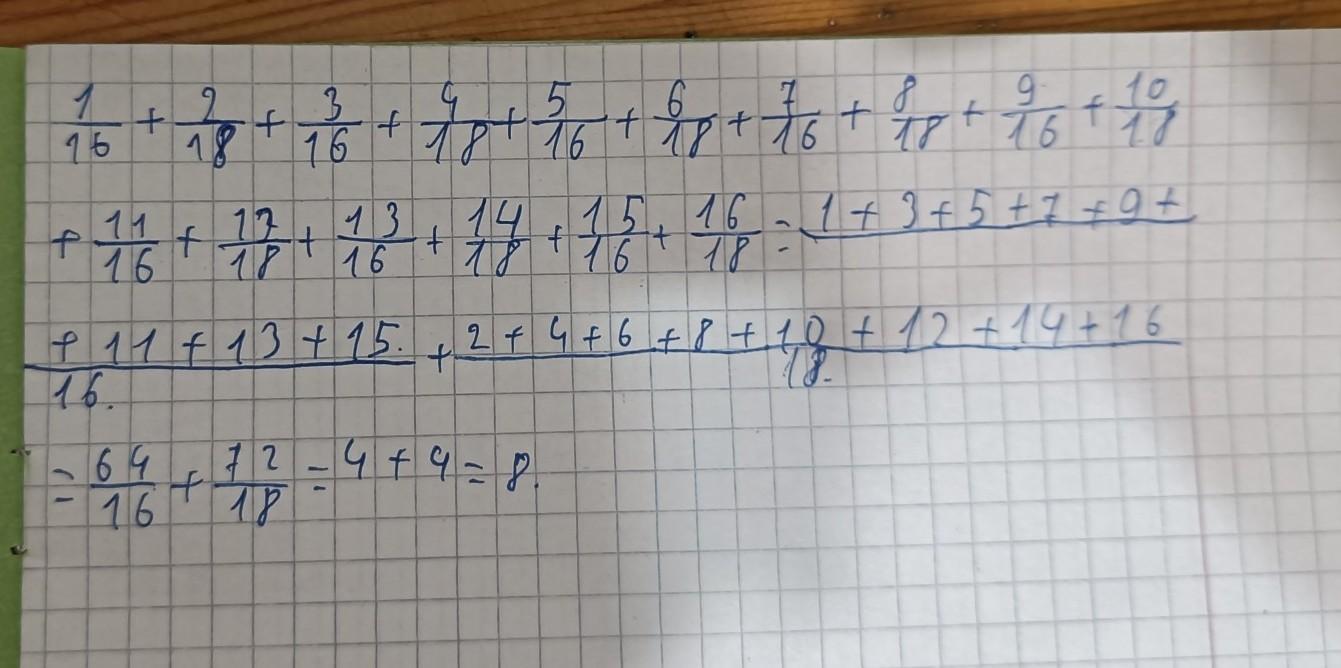 1/16 + 2/18 + 3/16 + 4/18 + 5/16 + 6/18 + 7/16 + 8/18 + 9/16 + 10/18
+ 11/16 + 12/18 + 13/16 + 14/18 + 15/16 + 16/18 = 1 + 3 + 5 + 7 + 9 +
+ 11 + 13 + 15. / 16. + 2 + 4 + 6 + 8 + 10 + 12 + 14 + 16 / 18.
= 64/16 + 72/18 = 4 + 4 = 8.